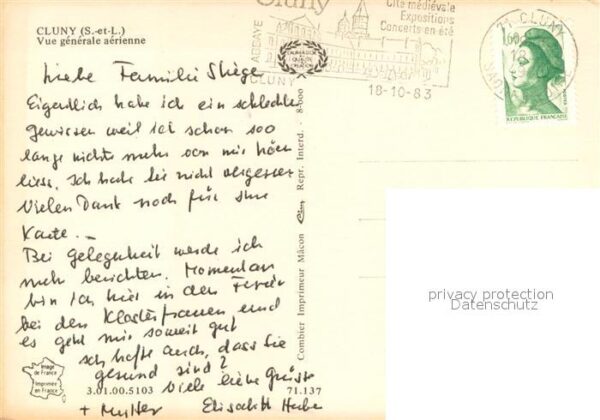 CLUNY (S.-et-L.)
Vue générale aérienne
Cluny
Cité médiévale
Expositions
Concerts en été
ABBAYE
CLUNY
18-10-83
71 CLUNY
1,60
REPUBLIQUE FRANCAISE
Liebe Familie
Eigentlich habe ich ein schlechtes
gewissen weil ich schon soo
lange nichts mehr von mir hören
liess. Ich habe Sie nicht vergessen
Vielen Dank noch für Ihre
Karte. —
Bei Gelegenheit werde ich
mehr berichten. Momentan
bin ich hier in den Ferien
bei den Klosterfrauen und
es geht mir soweit gut
Ich hoffe auch, dass Sie
gesund sind?
Viele liebe Grüsse
+ Mutter Elisabeth
Combier Imprimeur Mâcon
Repr. Interd. . 8-000
Image
de France
Imprimée
en France
3.01.00.5103
71.137
privacy protection
Datenschutz